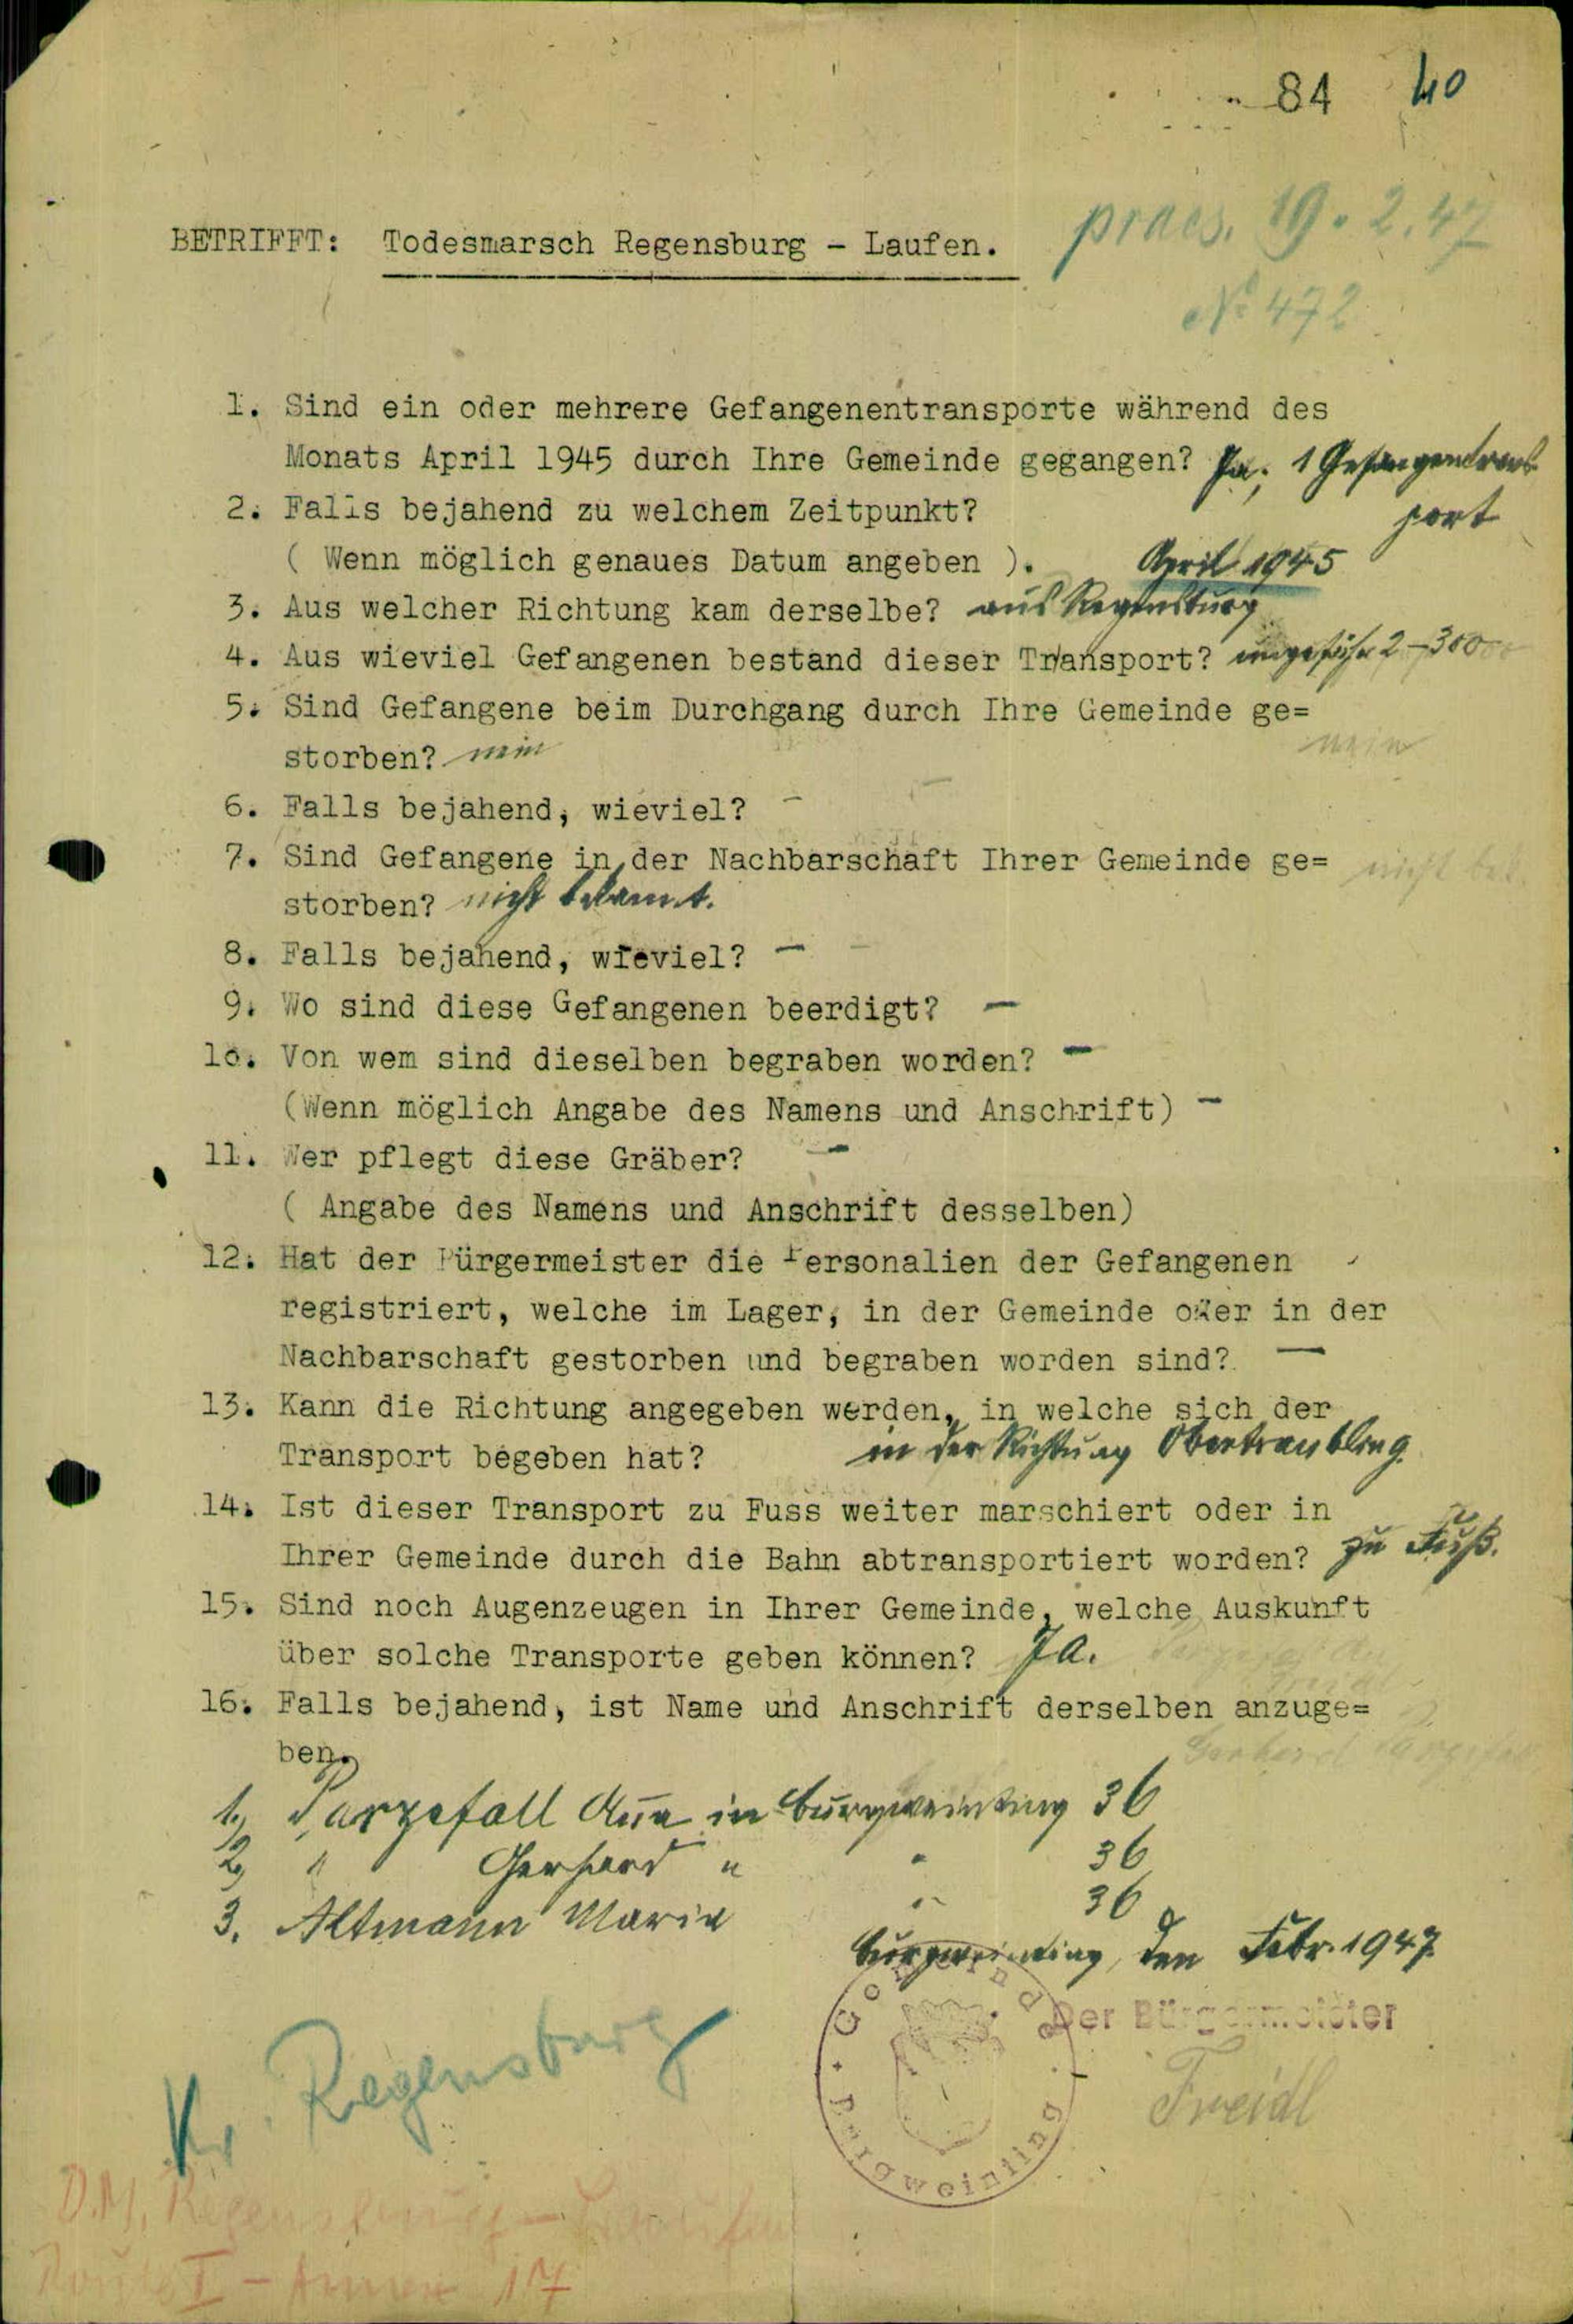 84 40
BETRIFFT: Todesmarsch Regensburg - Laufen.
praes. 19.2.47
№ 472
1. Sind ein oder mehrere Gefangenentransporte während des
Monats April 1945 durch Ihre Gemeinde gegangen? Ja, 1 Gefangentrans
port
2. Falls bejahend zu welchem Zeitpunkt?
( Wenn möglich genaues Datum angeben ). April 1945
3. Aus welcher Richtung kam derselbe? aus Regensburg
4. Aus wieviel Gefangenen bestand dieser Transport? ungefähr 2-300
5. Sind Gefangene beim Durchgang durch Ihre Gemeinde ge=
nein
storben? nein
6. Falls bejahend, wieviel? -
7. Sind Gefangene in der Nachbarschaft Ihrer Gemeinde ge= nicht bek.
storben? nicht bekannt.
8. Falls bejahend, wieviel? -
9. Wo sind diese Gefangenen beerdigt? -
10. Von wem sind dieselben begraben worden? -
(Wenn möglich Angabe des Namens und Anschrift) -
11. Wer pflegt diese Gräber? -
( Angabe des Namens und Anschrift desselben)
12. Hat der Bürgermeister die Personalien der Gefangenen
registriert, welche im Lager, in der Gemeinde oder in der
Nachbarschaft gestorben und begraben worden sind? -
13. Kann die Richtung angegeben werden, in welche sich der
Transport begeben hat? in der Richtung Obertraubling
14. Ist dieser Transport zu Fuss weiter marschiert oder in
Ihrer Gemeinde durch die Bahn abtransportiert worden? zu Fuß.
15. Sind noch Augenzeugen in Ihrer Gemeinde, welche Auskunft
über solche Transporte geben können? Ja.
16. Falls bejahend, ist Name und Anschrift derselben anzuge=
ben.
1. Parzefall in Burgweinting 36
2, " Gerhard " " 36
3. Altmann Maria " 36
Burgweinting, den Febr. 1947
Der Bürgermeister
Gemeinde Burgweinting
Freidl
Kr. Regensburg
D.M. Regensburg - Laufen
Route I - Annex 17